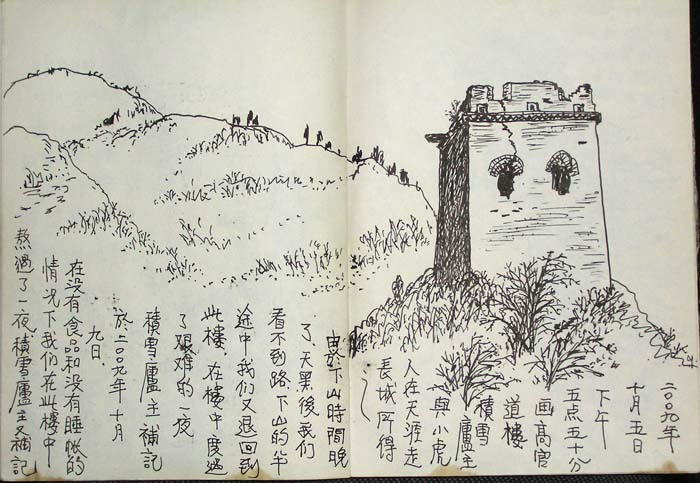 二〇〇九年
十月五日
下午
五点五十分
画高官
道樓
積雪
廬主
與小虎
人在天涯走
長城所得
由於下山時間晚
了、天黑後我們
看不到路下山的半
途中我們又退回到
此樓、在樓中度過
了艱難的一夜
積雪廬主補記
於二〇〇九年十月
九日.
在没有食品和没有睡帐的
情况下我们在此樓中
熬過了一夜,積雪廬主又補記